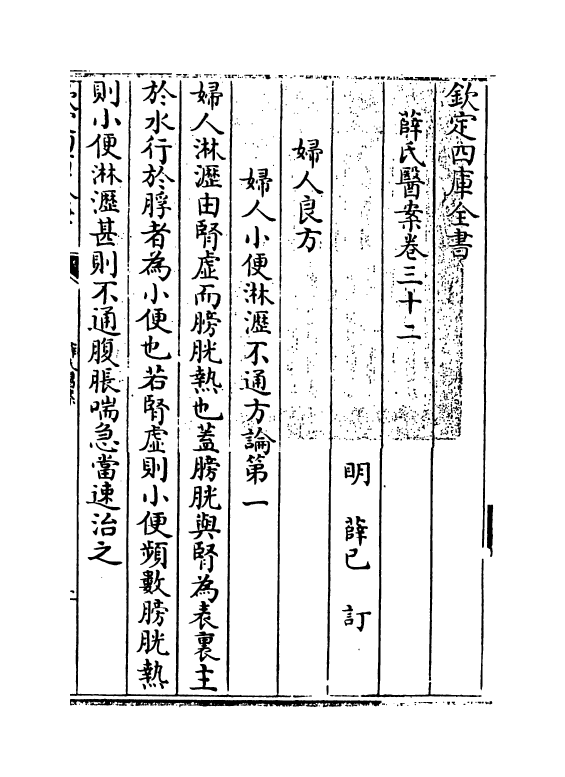 欽定四庫全書
薛氏醫案卷三十二
明 薛已 訂
婦人良方
婦人小便淋瀝不通方論第一
婦人淋瀝由腎虚而膀胱熱也蓋膀胱與腎為表裏主
於水行於脬者為小便也若腎虚則小便頻數膀胱熱
則小便淋瀝甚則不通腹脹喘急當速治之